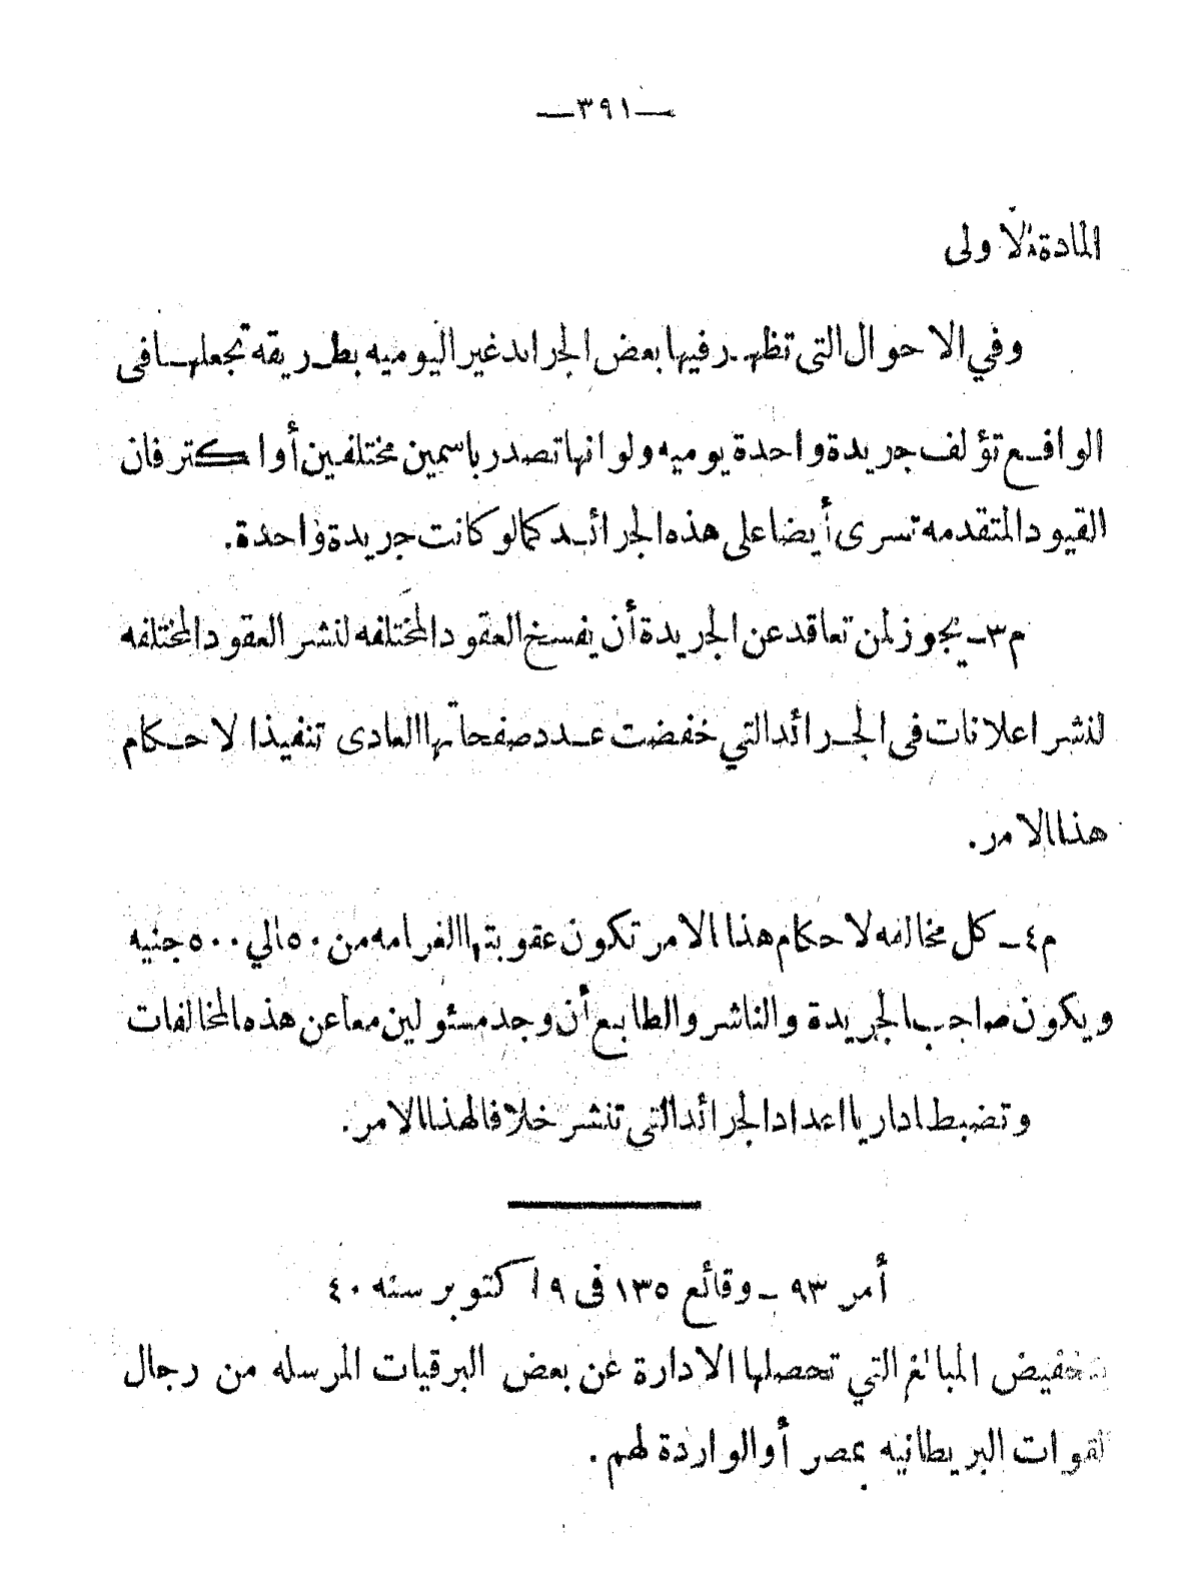 —٣٩١—
المادة الأولى
وفي الاحوال التى تظهر فيها بعض الجرائد غير اليوميه بطريقه تجعلها فى
الواقع تؤلف جريدة واحدة يوميه ولو انها تصدر باسمين مختلفين أو اكثر فان
القيود المتقدمه تسرى أيضا على هذه الجرائد كما لو كانت جريدة واحدة.
م٣ــ يجوز لمن تعاقد عن الجريدة أن يفسخ العقود المختلفه لنشر العقود المختلفه
لنشر اعلانات فى الجرائد التي خفضت عدد صفحاتها العادى تنفيذا لاحكام
هذا الامر.
م٤ــ كل مخالفه لاحكام هذا الامر تكون عقوبتها الغرامه من ٥٠ الي ٥٠٠ جنيه
ويكون صاحب الجريدة والناشر والطابع أن وجد مسئولين معا عن هذه المخالفات
وتضبط اداريا اعداد الجرائد التى تنشر خلافا لهذا الامر.
أمر ٩٣ ــ وقائع ١٣٥ فى ٩ اكتوبر سنه ٤٠
بتخفيض المبالغ التي تحصلها الادارة عن بعض البرقيات المرسله من رجال
القوات البريطانيه بمصر أو الواردة لهم.